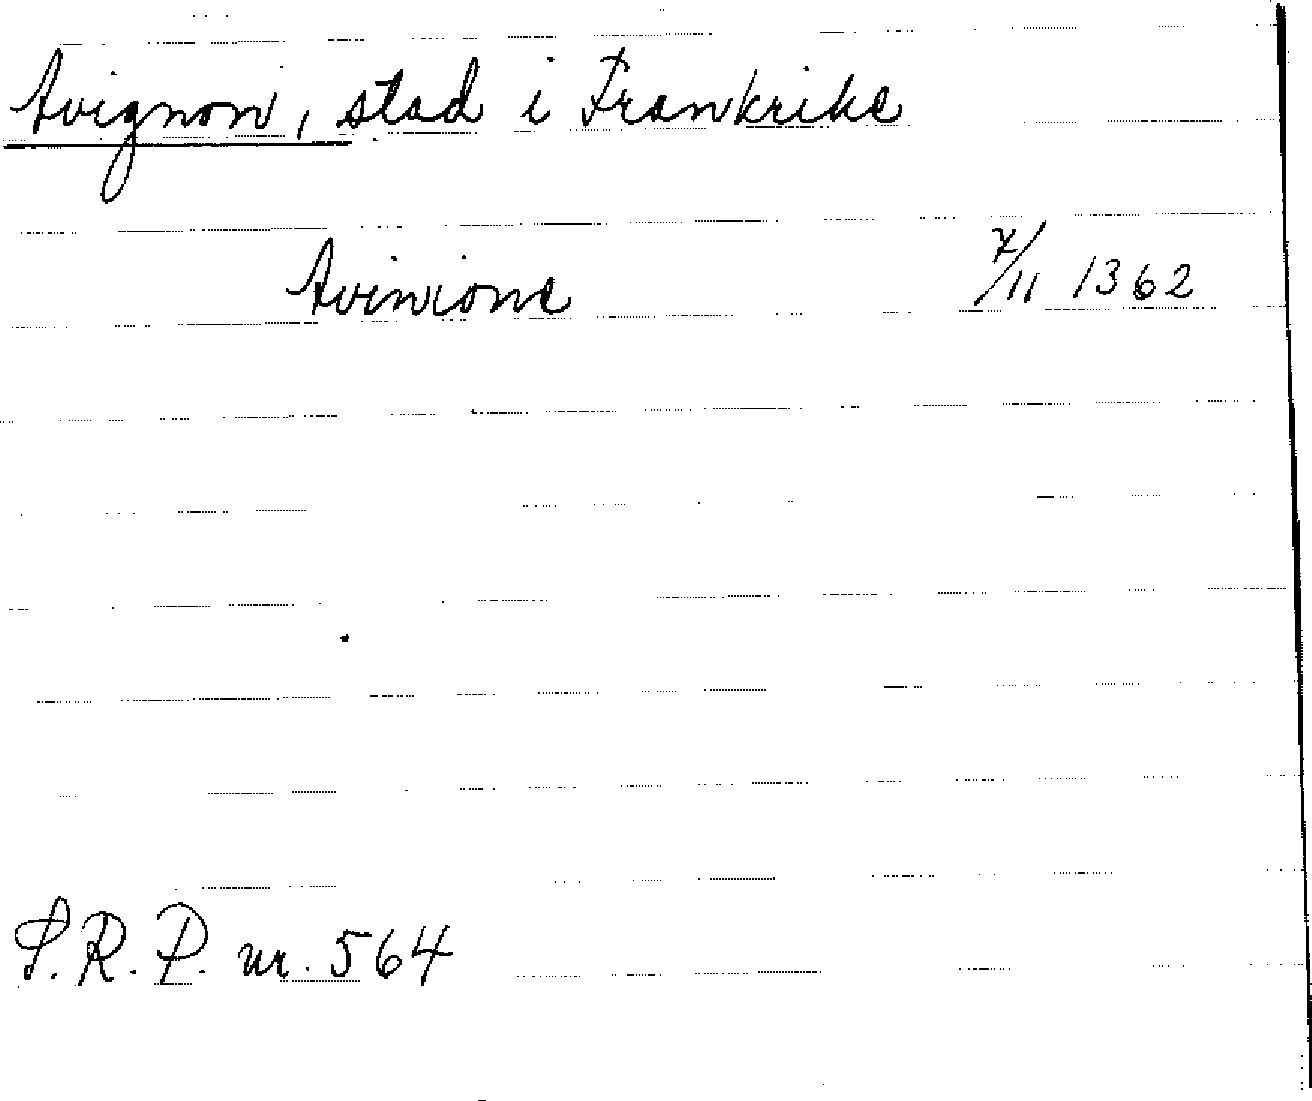 Avignon, stad i Frankrike
Avinione 7/11 1362
S.R.P. nr. 564